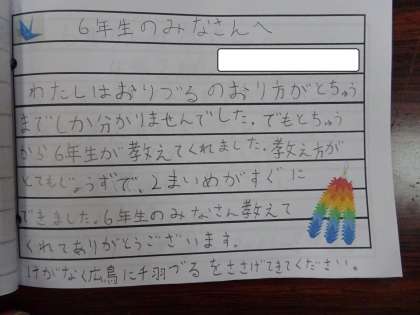 6年生のみなさんへ
わたしはおりづるのおり方がとちゅう
までしか分かりませんでした。でもとちゅう
から6年生が教えてくれました。教え方が
とてもじょうずで、2まいめがすぐに
できました。6年生のみなさん教えて
くれてありがとうございます。
けがなく広島に千羽づるをささげてきてください。